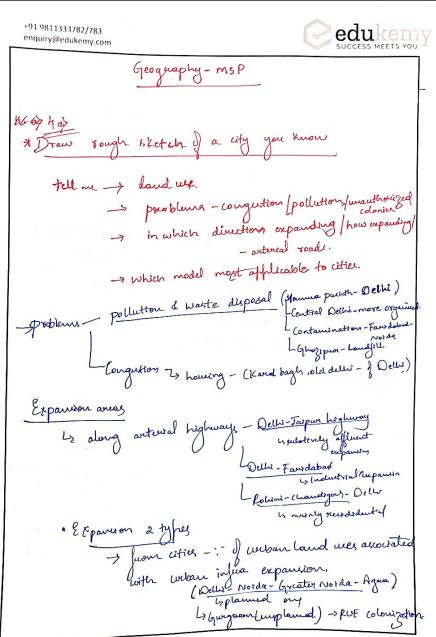 +91 9811333782/783
enquiry@edukemy.com
edukemy
SUCCESS MEETS YOU
Geography - MSP
* Draw rough sketch of a city you know
tell me → land use.
→ problems - congestion/pollution/unauthorized colonies
→ in which directions expanding/how expanding/
- arterial roads.
→ which model most applicable to cities.
→ Problems - pollution & waste disposal (Yamuna - Delhi)
Central Delhi - more organised
Contamination - Faridabad - Noida
Ghazipur - Landfill
Congestion → housing - (Karol bagh, old delhi - Delhi)
Expansion areas
↳ along arterial highways - Delhi-Jaipur highway
↳ relatively affluent expansion
Delhi - Faridabad
↳ Industrial expansion
Rohini - Chandigarh - Delhi
↳ mainly residential
• Expansion 2 types
→ from cities - ∵ of urban land uses associated
with urban infra expansion.
(Delhi - Noida - Greater Noida - Agra)
↳ planned one
↳ Gurgaon (unplanned) → RUF colonization